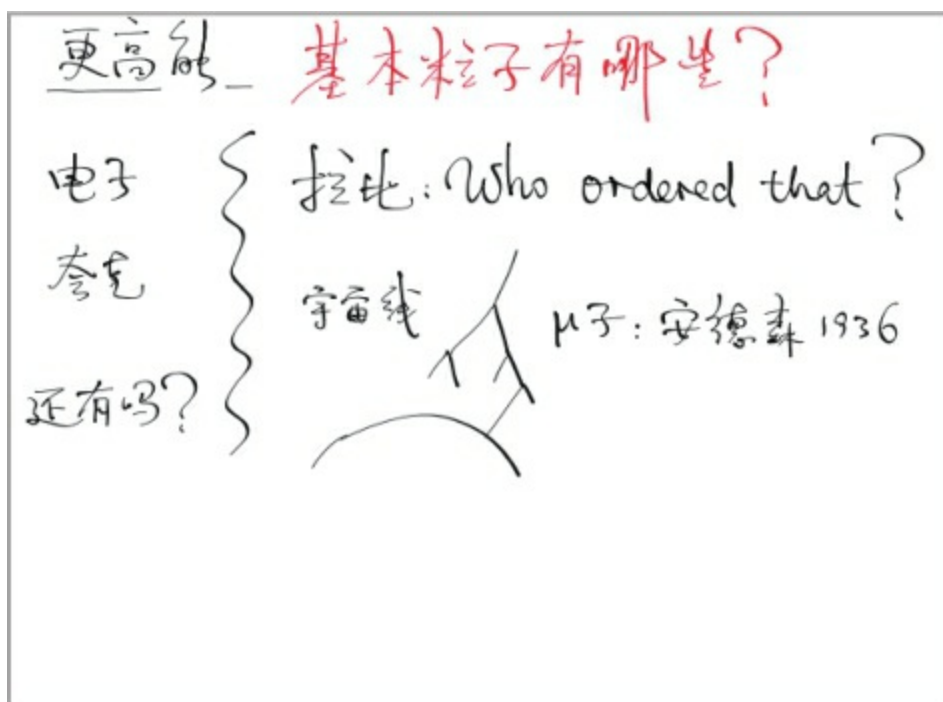 更高能 基本粒子有哪些?
电子
夸克
还有吗?
拉比: Who ordered that?
宇宙线
μ子: 安德森 1936